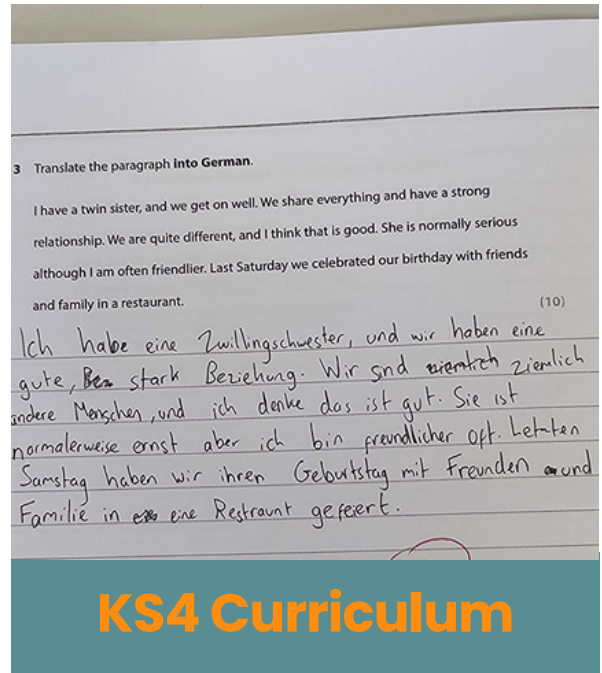 3 Translate the paragraph into German.
I have a twin sister, and we get on well. We share everything and have a strong
relationship. We are quite different, and I think that is good. She is normally serious
although I am often friendlier. Last Saturday we celebrated our birthday with friends
and family in a restaurant.
(10)
Ich habe eine Zwillingschwester, und wir haben eine
gute, stark Beziehung. Wir sind ziemlich
andere Menschen, und ich denke das ist gut. Sie ist
normalerweise ernst aber ich bin freundlicher oft. Letzten
Samstag haben wir ihren Geburtstag mit Freunden und
Familie in eine Restraunt gefeiert.
KS4 Curriculum